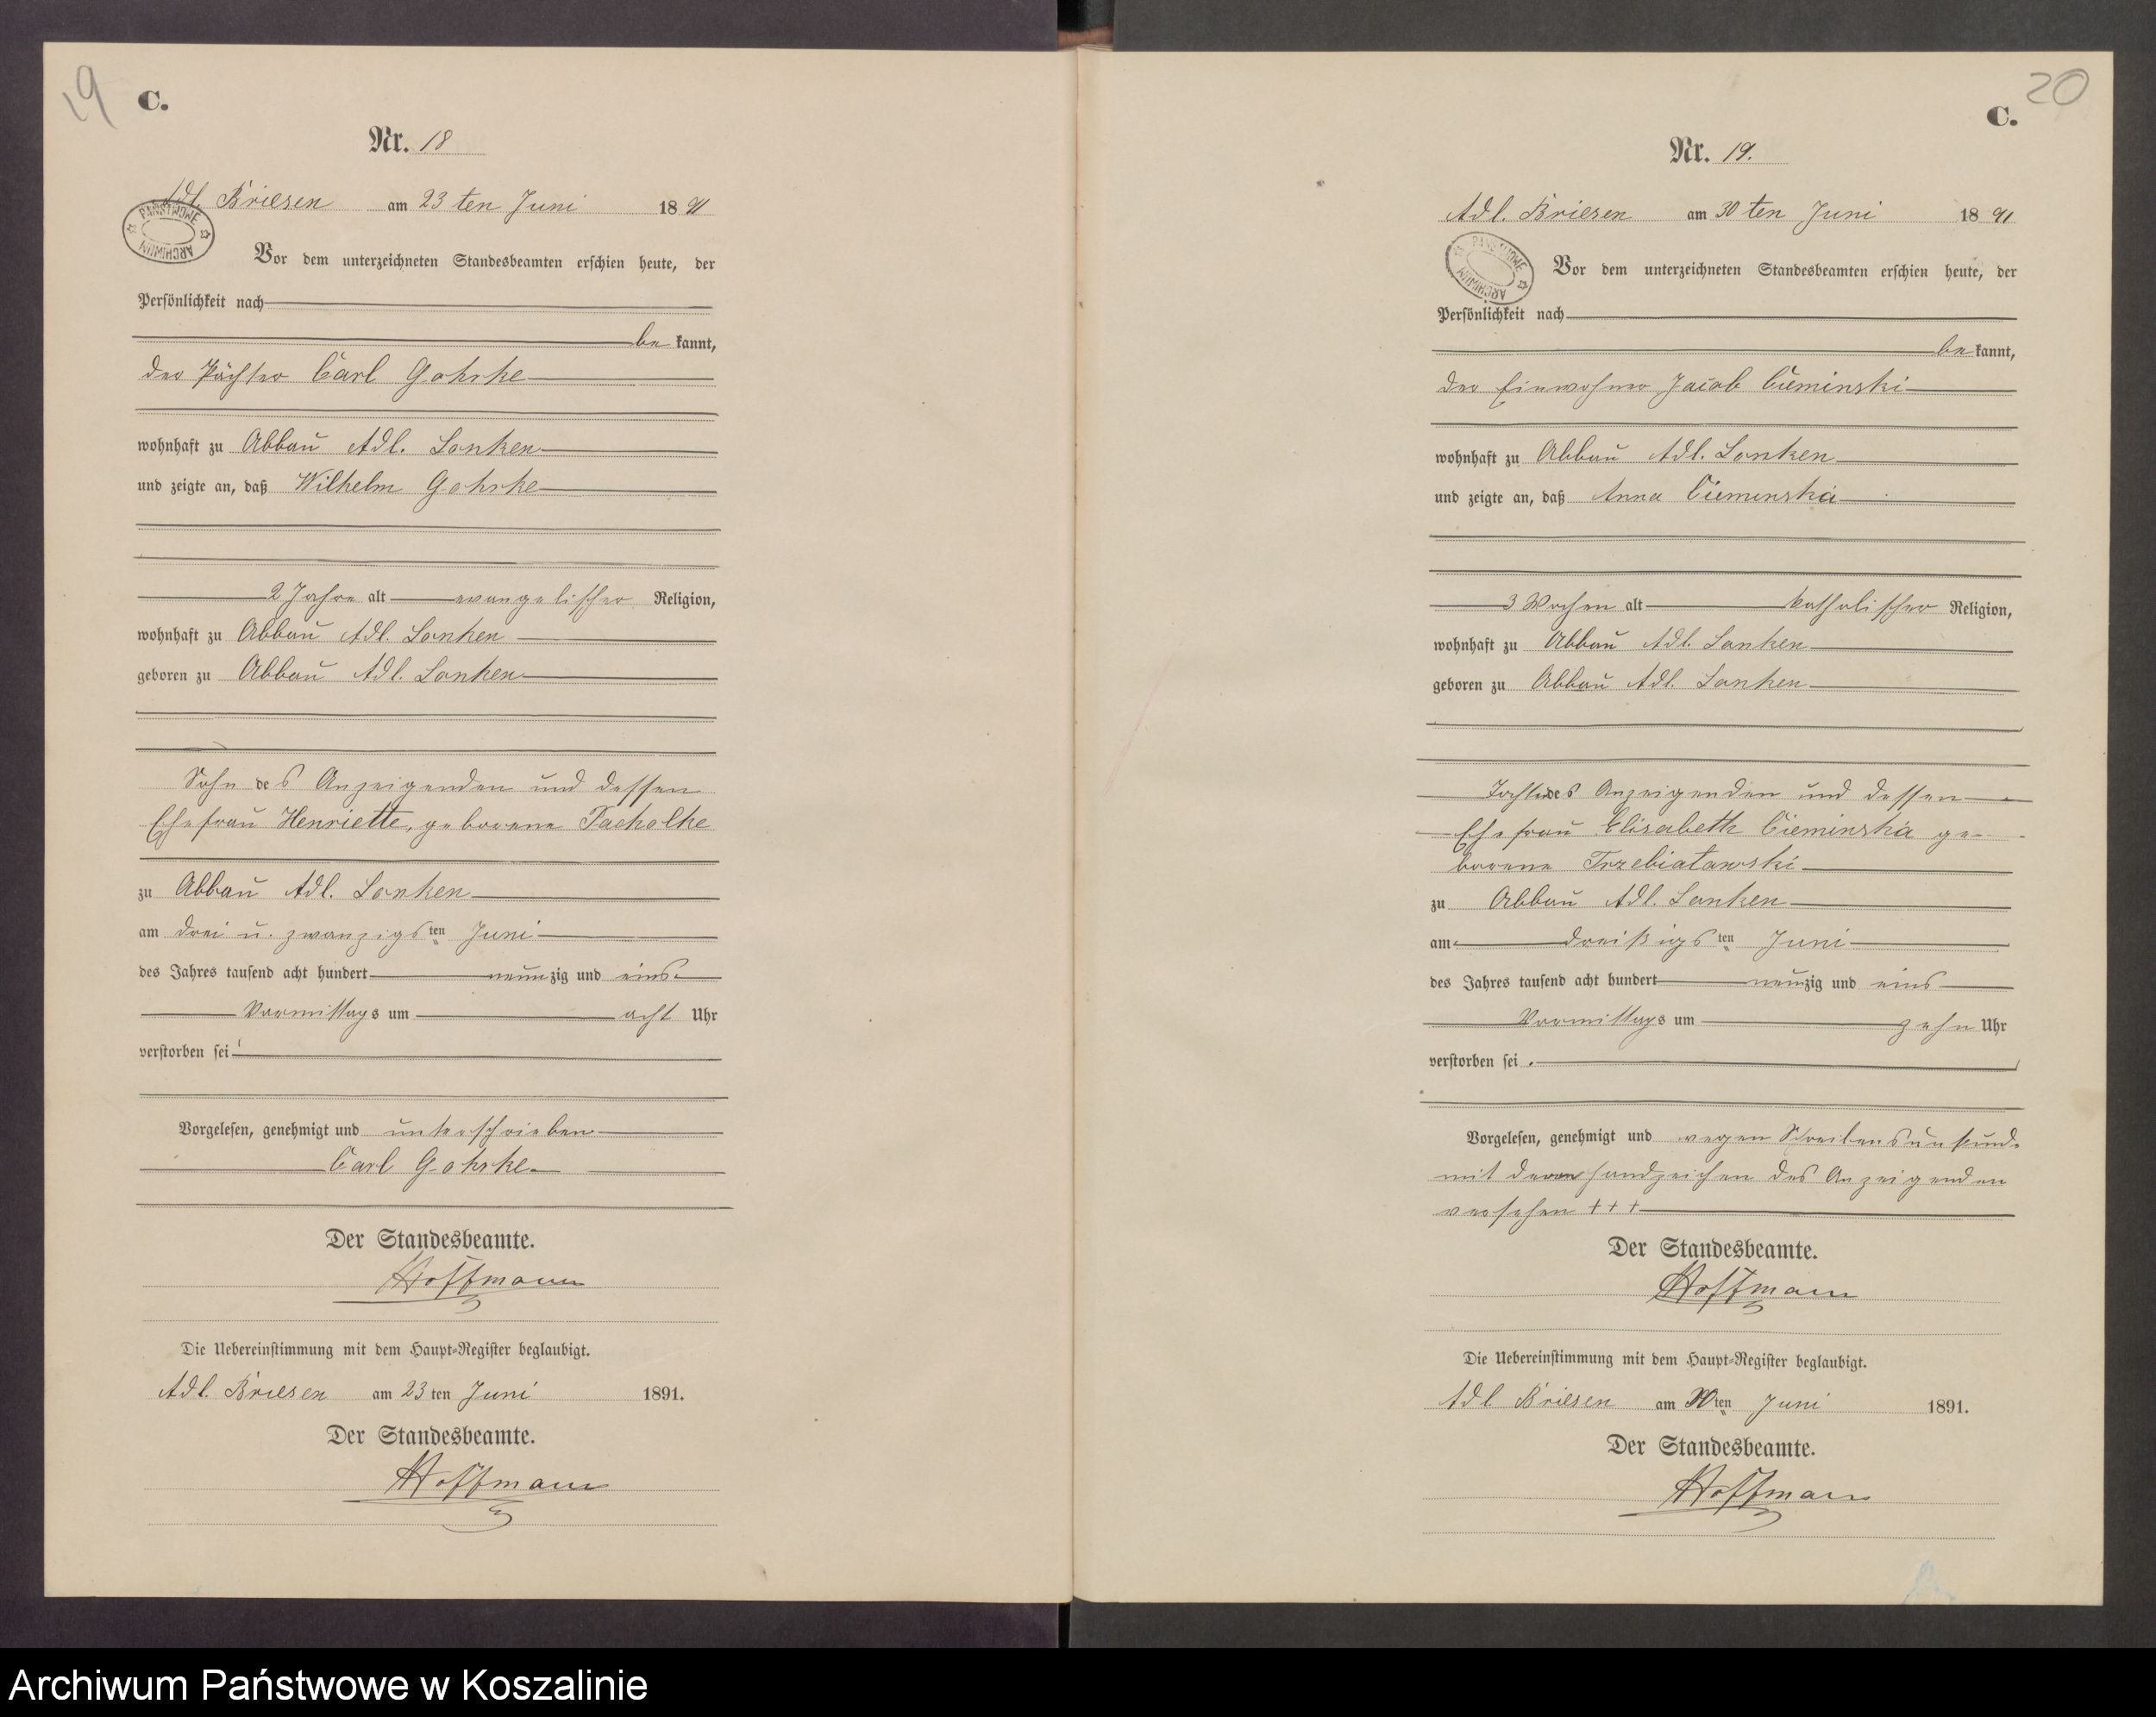 19
C.
Nr. 18
Adl. Briesen am 23 ten Juni 1891
PAŃSTWOWE ARCHIWUM
Vor dem unterzeichneten Standesbeamten erschien heute, der
Persönlichkeit nach
be kannt,
der Pächter Carl Gohrke
wohnhaft zu Abbau Adl. Lonken
und zeigte an, daß Wilhelm Gohrke
2 Jahre alt evangelischer Religion,
wohnhaft zu Abbau Adl. Lonken
geboren zu Abbau Adl. Lonken
Sohn des Anzeigenden und dessen
Ehefrau Henriette, geborene Pacholke
zu Abbau Adl. Lonken
am drei u. zwanzigsten Juni
des Jahres tausend acht hundert neunzig und eins
Vormittags um acht Uhr
verstorben sei
Vorgelesen, genehmigt und unterschrieben
Carl Gohrke
Der Standesbeamte.
Hoffmann
Die Uebereinstimmung mit dem Haupt-Register beglaubigt.
Adl. Briesen am 23 ten Juni 1891.
Der Standesbeamte.
Hoffmann
20
C.
Nr. 19.
Adl. Briesen am 30 ten Juni 1891
PAŃSTWOWE ARCHIWUM
Vor dem unterzeichneten Standesbeamten erschien heute, der
Persönlichkeit nach
be kannt,
der Einwohner Jacob Cieminski
wohnhaft zu Abbau Adl. Lonken
und zeigte an, daß Anna Cieminska
3 Wochen alt katholischer Religion,
wohnhaft zu Abbau Adl. Lonken
geboren zu Abbau Adl. Lonken
Tochter des Anzeigenden und dessen
Ehefrau Elisabeth Cieminska ge-
borene Trzebiatowski
zu Abbau Adl. Lonken
am dreißigsten Juni
des Jahres tausend acht hundert neunzig und eins
Vormittags um zehn Uhr
verstorben sei.
Vorgelesen, genehmigt und wegen Schreibensunkunde
mit Handzeichen des Anzeigenden
versehen +++
Der Standesbeamte.
Hoffmann
Die Uebereinstimmung mit dem Haupt-Register beglaubigt.
Adl Briesen am 30ten Juni 1891.
Der Standesbeamte.
Hoffmann
Archiwum Państwowe w Koszalinie